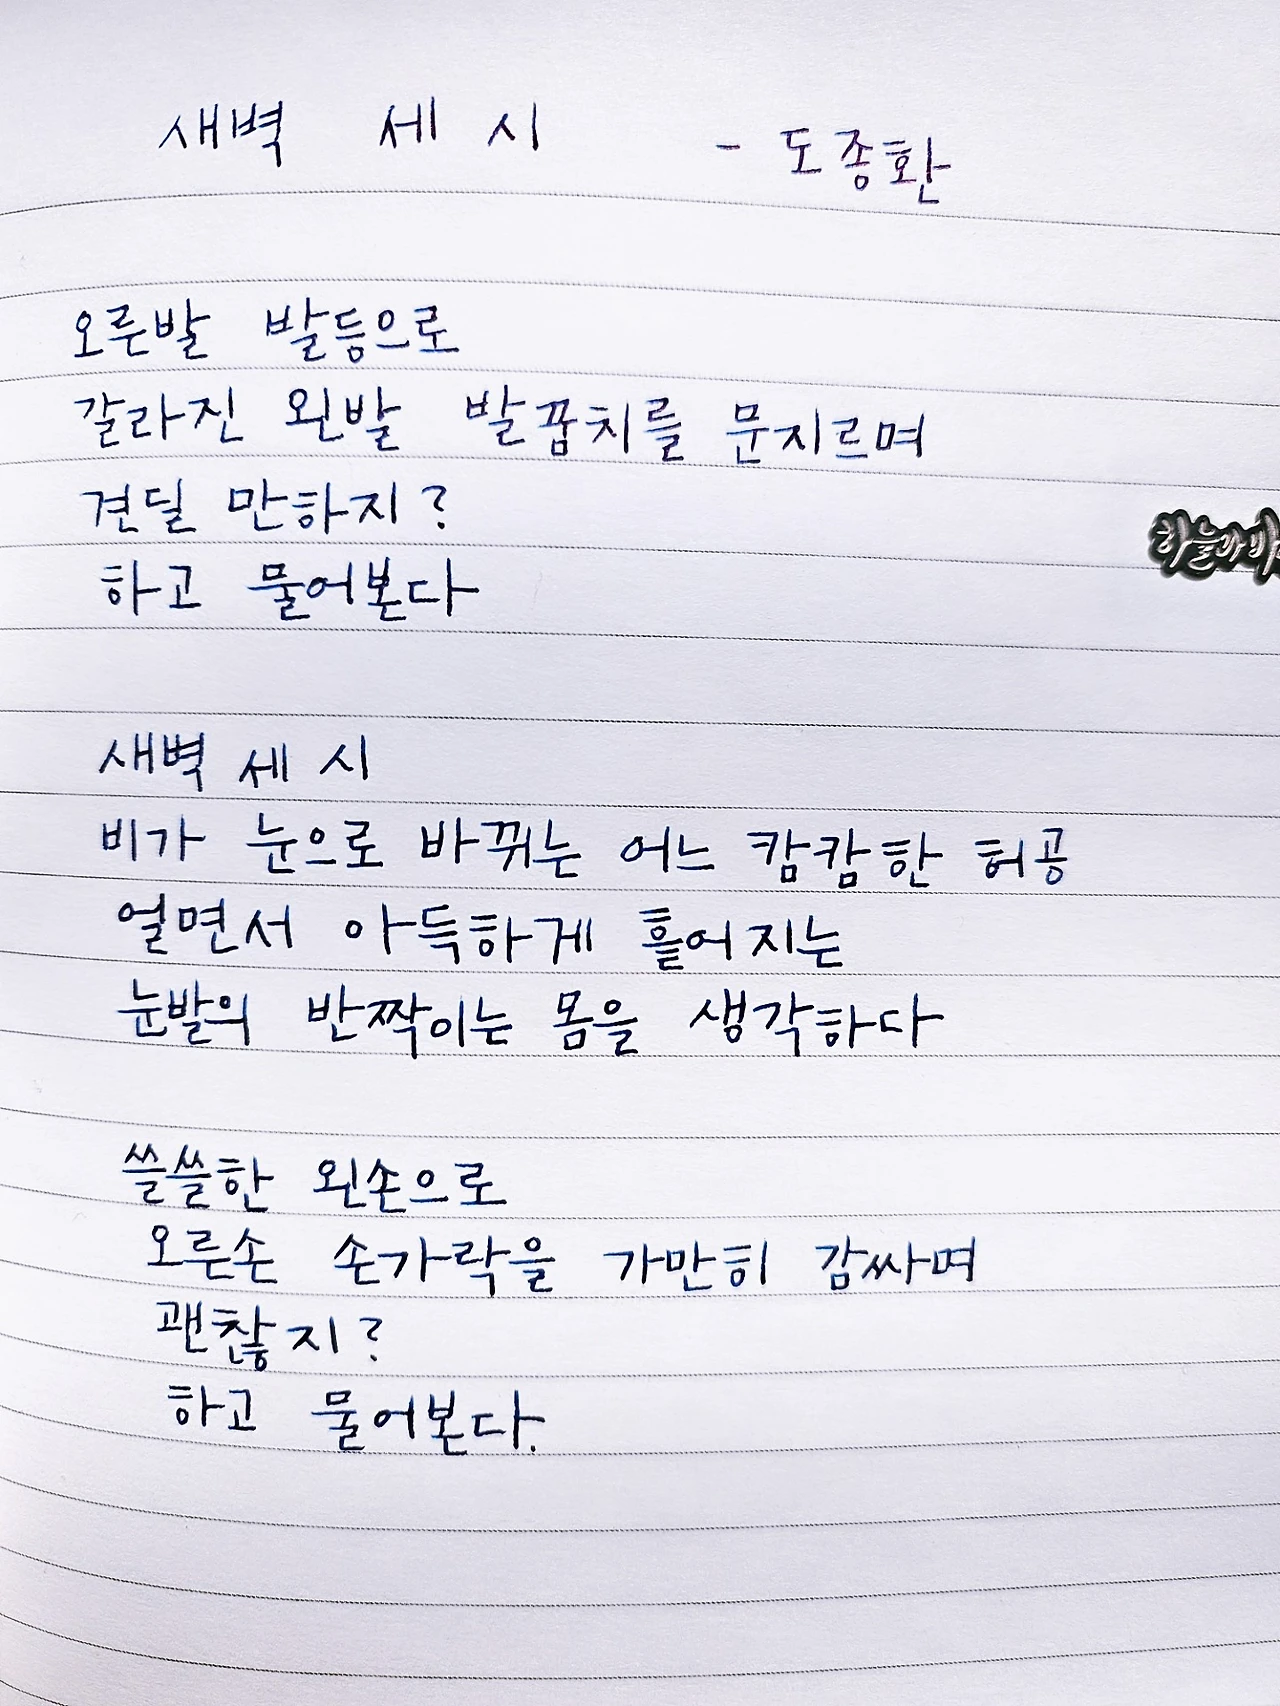 새벽 세 시 - 도종환
오른발 발등으로
갈라진 왼발 발꿈치를 문지르며
견딜 만하지?
하고 물어본다
새벽 세 시
비가 눈으로 바뀌는 어느 캄캄한 허공
얼면서 아득하게 흩어지는
눈발의 반짝이는 몸을 생각하다
쓸쓸한 왼손으로
오른손 손가락을 가만히 감싸며
괜찮지?
하고 물어본다.